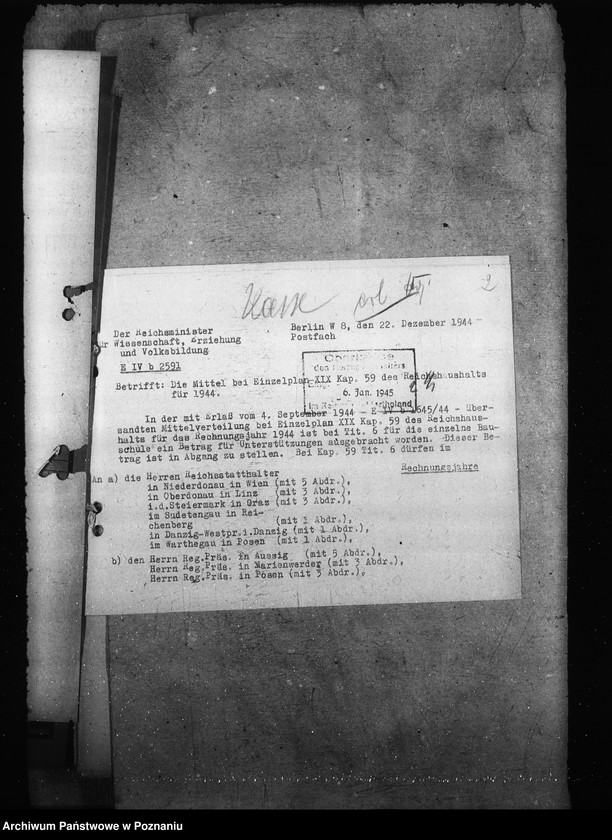 2
Kasse erl.
Der Reichsminister
für Wissenschaft, Erziehung
und Volksbildung
E IV b 2591
Berlin W 8, den 22. Dezember 1944
Postfach
Oberkasse
des Reichsstatthalters
6. Jan. 1945
im Reichsgau Wartheland
Betrifft: Die Mittel bei Einzelplan XIX Kap. 59 des Reichshaushalts
für 1944.
In der mit Erlaß vom 4. September 1944 - E IV b 1645/44 - über-
sandten Mittelverteilung bei Einzelplan XIX Kap. 59 des Reichshaus-
halts für das Rechnungsjahr 1944 ist bei Tit. 6 für die einzelne Bau-
schule ein Betrag für Unterstützungen ausgebracht worden. Dieser Be-
trag ist in Abgang zu stellen. Bei Kap. 59 Tit. 6 dürfen im
Rechnungsjahre
An a) die Herren Reichsstatthalter
in Niederdonau in Wien (mit 5 Abdr.),
in Oberdonau in Linz (mit 3 Abdr.),
i.d.Steiermark in Graz (mit 3 Abdr.),
im Sudetengau in Rei-
chenberg (mit 1 Abdr.),
in Danzig-Westpr.i.Danzig (mit 1 Abdr.),
im Warthegau in Posen (mit 1 Abdr.),
b) den Herrn Reg.Präs. in Aussig (mit 5 Abdr.),
Herrn Reg.Präs. in Marienwerder (mit 3 Abdr.),
Herrn Reg.Präs. in Posen (mit 3 Abdr.),
Archiwum Państwowe w Poznaniu